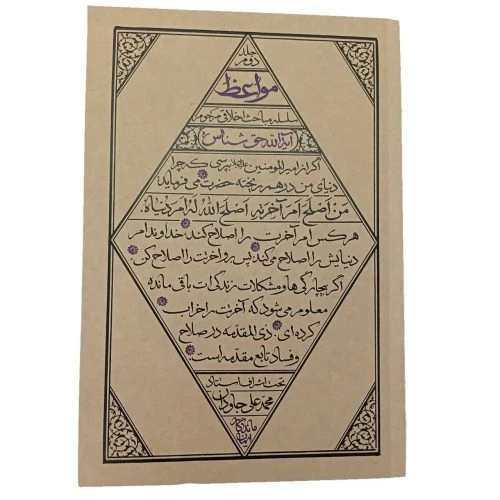 جلد
دوم
مواعظ
سلسله مباحث اخلاقی مرحوم
آیة‌الله حق شناس
اگر از امیرالمومنین علیه‌السلام بپرسی که چرا
دنیای من در هم ریخته حضرت می فرماید:
مَن اَصلَحَ اَمرَ آخِرَتِهِ اَصلَحَ اللهُ لَهُ اَمرَ دُنیاهُ.
هر کس امر آخرت را اصلاح کند، خداوند امر
دنیایش را اصلاح می‌کند؛ پس رو آخرت را اصلاح کن.
اگر بیچارگی ها و مشکلات زندگی ات باقی مانده
معلوم می شود که آخرتت را خراب
کرده ای. ذی المقدمه در صلاح
و فساد تابع مقدمه است.
تحت اشراف استاد
محمد علی جاودان
ماندگار